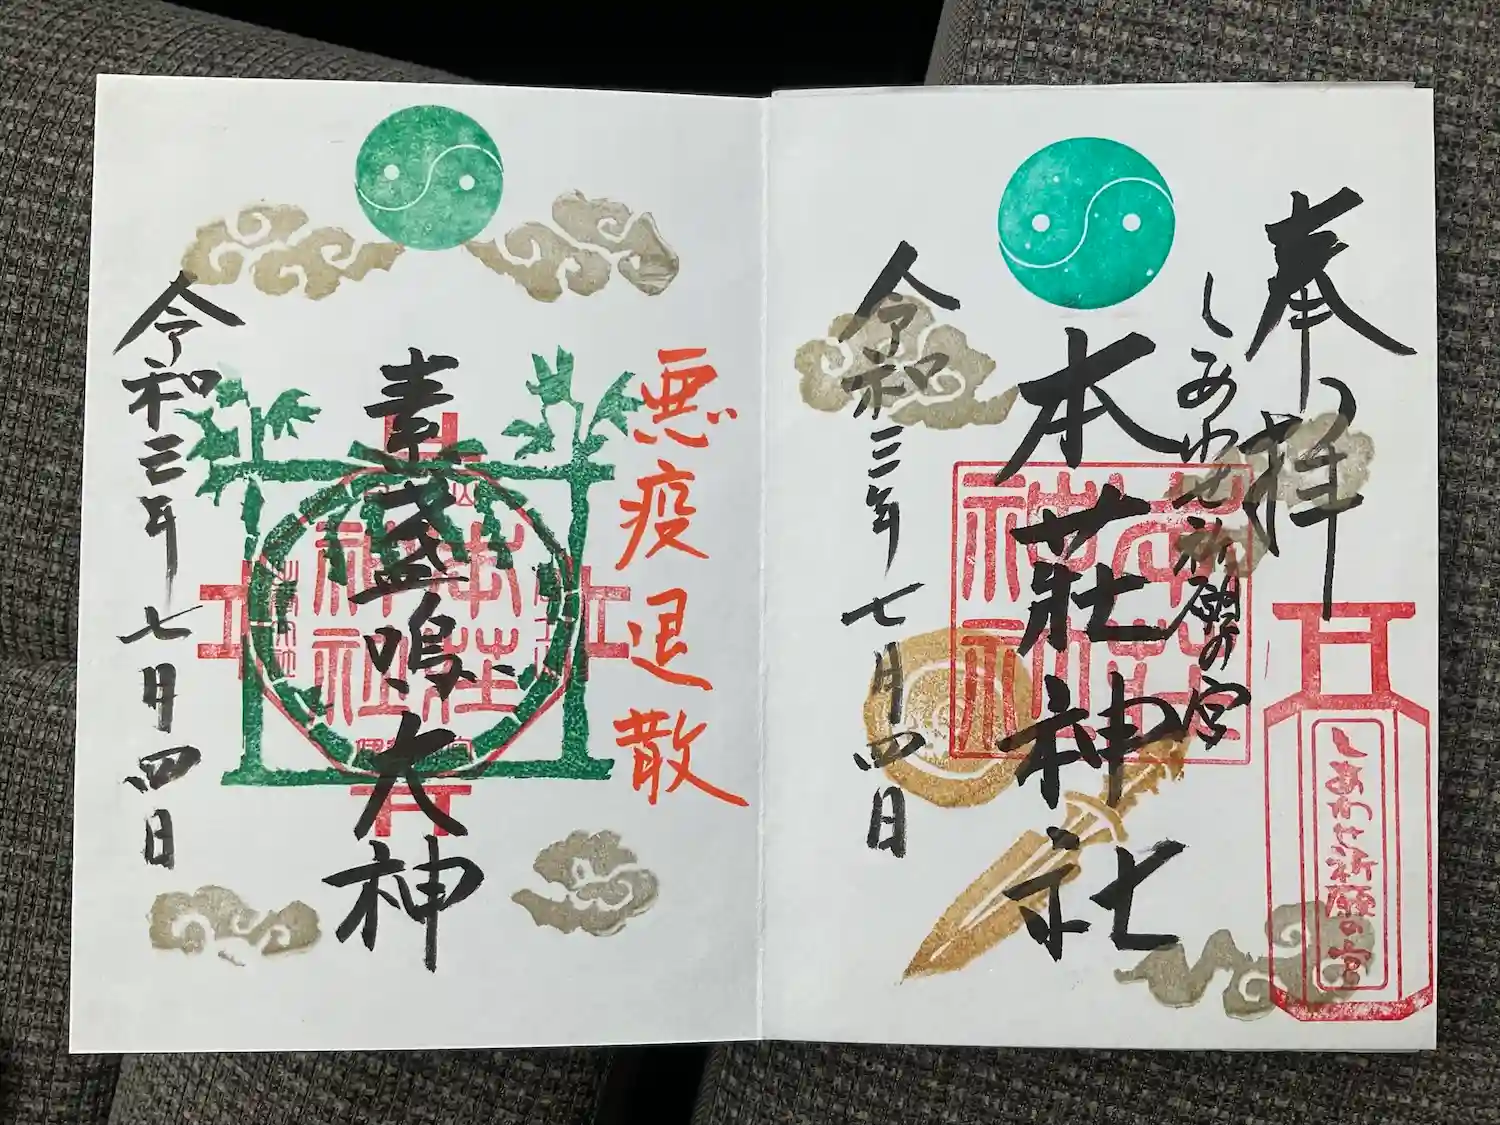 奉拝
しあわせ祈願の宮
本莊神社
令和三年七月四日
本荘神社
しあわせ祈願の宮
悪疫退散
素盞嗚大神
令和三年七月四日
本荘神社